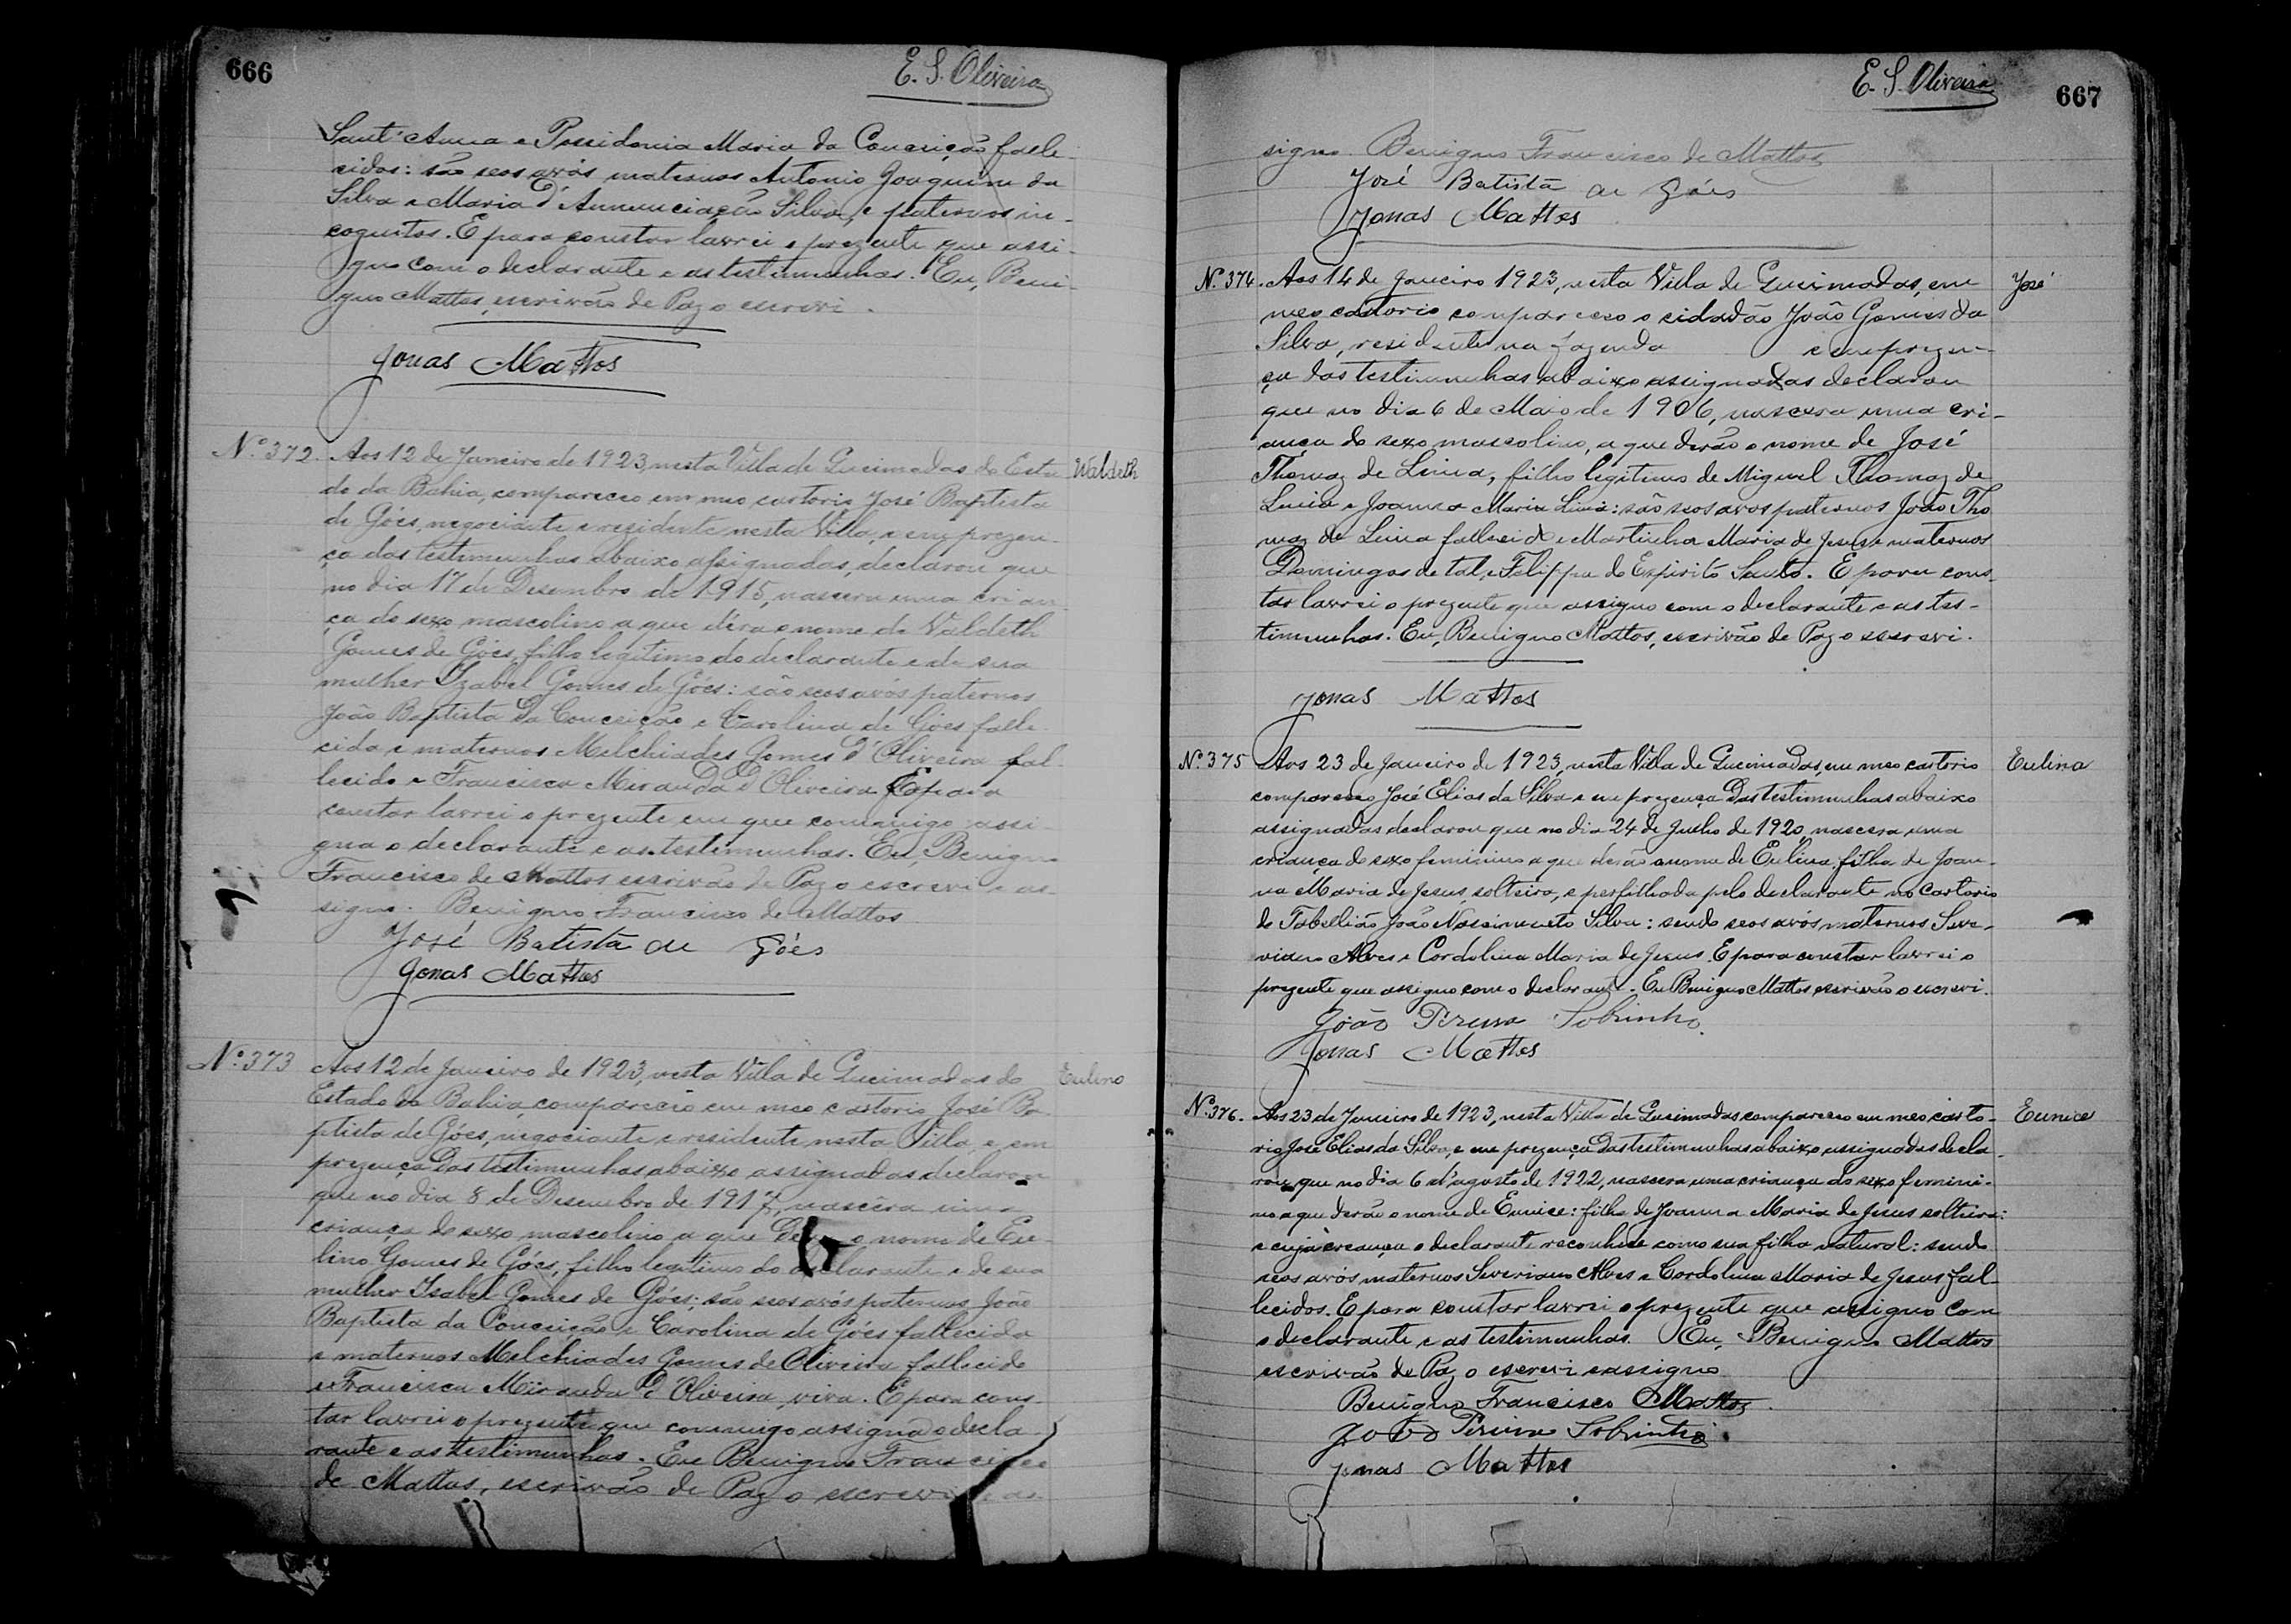 666
E. S. Oliveira
Sant'Anna e Possidonia Maria da Conceição falle-
cidos: são seos avós maternos Antonio Joaquim da
Silva e Maria d'Annunciação Silva, e paternos in-
cognitos. E para constar lavrei o prezente que assi-
gno com o declarante e as testimunhas. Eu, Beni-
gno Mattos, escrivão de Paz o escrevi.
Jonas Mattos
Nº 372. Aos 12 de Janeiro de 1923, nesta Villa de Queimadas do Esta-
Waldeth
do da Bahia, compareceo em meo cartorio José Baptista
de Góes, negociante e residente nesta Villa, e em prezen-
ça das testimunhas abaixo assignadas, declarou que
no dia 17 de Desembro de 1915, nascera uma crian-
ça do sexo mascolino a que déra o nome de Valdeth
Gomes de Góes, filho legitimo do declarante e de sua
mulher Izabel Gomes de Góes: são seos avós paternos
João Baptista da Conceição e Carolina de Góes falle-
cida e maternos Melchiades Gomes d'Oliveira fal-
lecido e Francisca Miranda d'Oliveira E para
constar lavrei o prezente em que commigo assi-
gna o declarante e as testimunhas. Eu, Benigno
Francisco de Mattos escrivão de Paz o escrevi e as-
signo. Benigno Francisco de Mattos
José Batista de Góes
Jonas Mattos
Nº 373 Aos 12 de Janeiro de 1923, nesta Villa de Queimadas do
Eulino
Estado da Bahia, compareceo em meo cartorio José Ba-
ptista de Góes, negociante e residente nesta Villa, e em
prezença das testimunhas abaixo assignadas declarou
que no dia 8 de Desembro de 1917, nascêra uma
criança do sexo mascolino a que o nome de Eu-
lino Gomes de Góes, filho legitimo do declarante e de sua
mulher Isabel Gomes de Góes; são seos avós paternos João
Baptista da Conceição e Carolina de Góes fallecida
e maternos Melchiades Gomes de Oliveira fallecido
e Francisca Miranda d'Oliveira, viva. E para cons-
tar lavrei o prezente que commigo assigna o decla-
rante e as testimunhas. Eu Benigno Francisco
de Mattos, escrivão de Paz o escrevi e as-
667
E. S. Oliveira
signo Benigno Francisco de Mattos
José Batista de Góes
Jonas Mattos
Nº 374. Aos 14 de Janeiro 1923, nesta Villa de Queimadas, em
José
meo cartorio compareceo o cidadão João Gomes da
Silva, residente na fazenda e em prezen-
ça das testimunhas abaixo assignadas declarou
que no dia 6 de Maio de 1906, nascera uma cri-
ança do sexo mascolino, a que derão o nome de José
Thomaz de Lima, filho legitimo de Miguel Thomaz de
Lima e Joanna Maria Lima: são seos avos paternos João Tho
maz de Lima fallecido e Martinha Maria de Jesus e maternos
Domingos de tal, e Felippa do Espirito Santo. E para cons-
tar lavrei o prezente que assigno com o declarante e as tes-
timunhas. Eu, Benigno Mattos, escrivão de Paz o escrevi.
Jonas Mattos
Nº 375 Aos 23 de Janeiro de 1923, nesta Villa de Queimadas, em meo cartorio
Eulina
compareceo José Elias da Silva e em prezença das testimunhas abaixo
assignadas declarou que no dia 24 de Julho de 1920, nascera uma
criança do sexo feminino a que derão o nome de Eulina filha de Joan-
na Maria de Jesus, solteira, e perfilhada pelo declarante no Cartorio
do Tabellião João Nascimento Silva: sendo seos avós maternos Seve-
riano Alves e Cordolina Maria de Jesus. E para constar lavrei o
prezente que assigno com o declarante. Eu Benigno Mattos escrivão o escrevi.
João Pereira Sobrinho.
Jonas Mattos
Nº 376. Aos 23 de Janeiro de 1923, nesta Villa de Queimadas compareceo em meo carto-
Eunice
rio José Elias da Silva, e em prezença das testimunhas abaixo assignadas decla-
rou que no dia 6 d'agosto de 1922, nascera uma criança do sexo femini-
no a que derão o nome de Eunice: filha de Joanna Maria de Jesus solteira:
e cuja creança o declarante reconhece como sua filha natural: sendo
seos avós maternos Severiano Alves e Cordolina Maria de Jesus fal-
lecidos. E para constar lavrei o prezente que assigno com
o declarante e as testimunhas. Eu, Benigno Mattos
escrivão de Paz o escrevi e assigno
Benigno Francisco Mattos
João Pereira Sobrinho.
Jonas Mattos